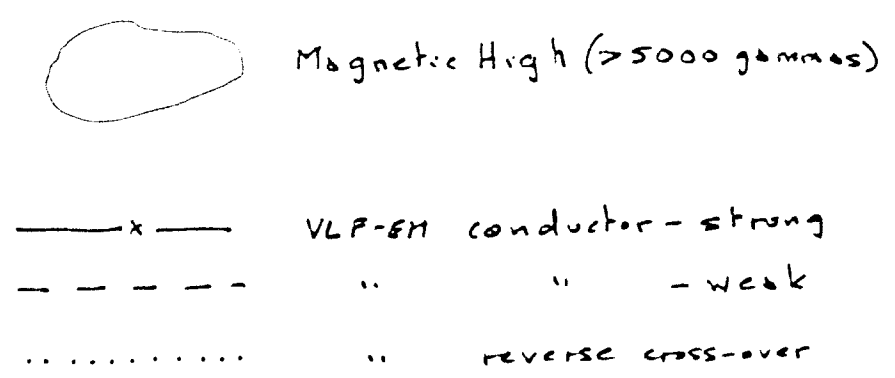 Magnetic High (>5000 gammas)
x VLF-EM conductor - strong
" " - weak
" reverse cross-over